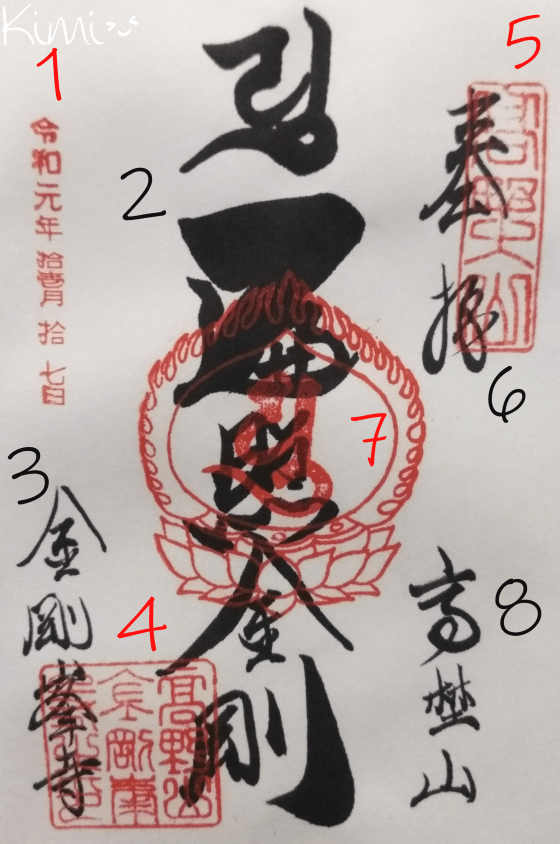 Kimi
5
奉拝
6
高埜山
8
2
遍照金剛
7
1
令和元年拾壹月拾七日
3
金剛峯寺
4
高野山
金剛峯